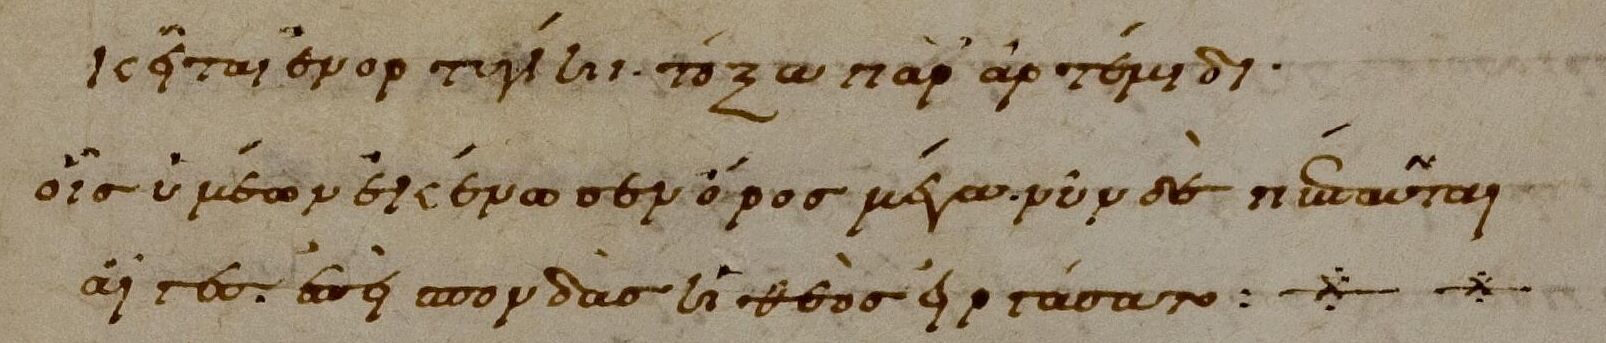 κεῖται ἐν ὀρτυγίηι. τόξα παρ' ἀρτέμιδι.
οἷς ὑμέων ἐκένωσεν ὄρος μέγα. νῦν δὲ πέπαυται
αἶγες. ἐπεὶ σπονδὰς ἡ θεὸς εἰργάσατο :